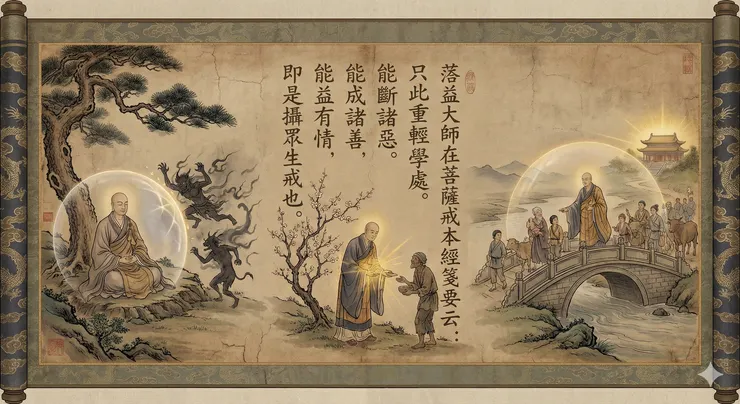 落益大師在菩薩戒本經箋要云:..
只此重輕學處。
能斷諸惡。
能成諸善,
能益有情,
即是攝眾生戒也。